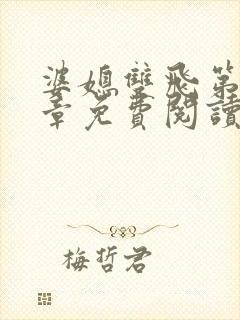 婆媳雙飛第
章免費閱讀
梅哲君